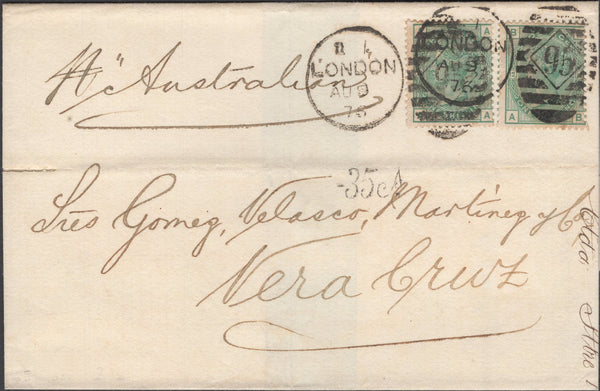 Pr Australia
LONDON
AU 9
76
LONDON
AU 9
76
95
A
A
B
A
B
35cs
Sres Gomez, Velasco, Martinez y Ca
Vera Cruz